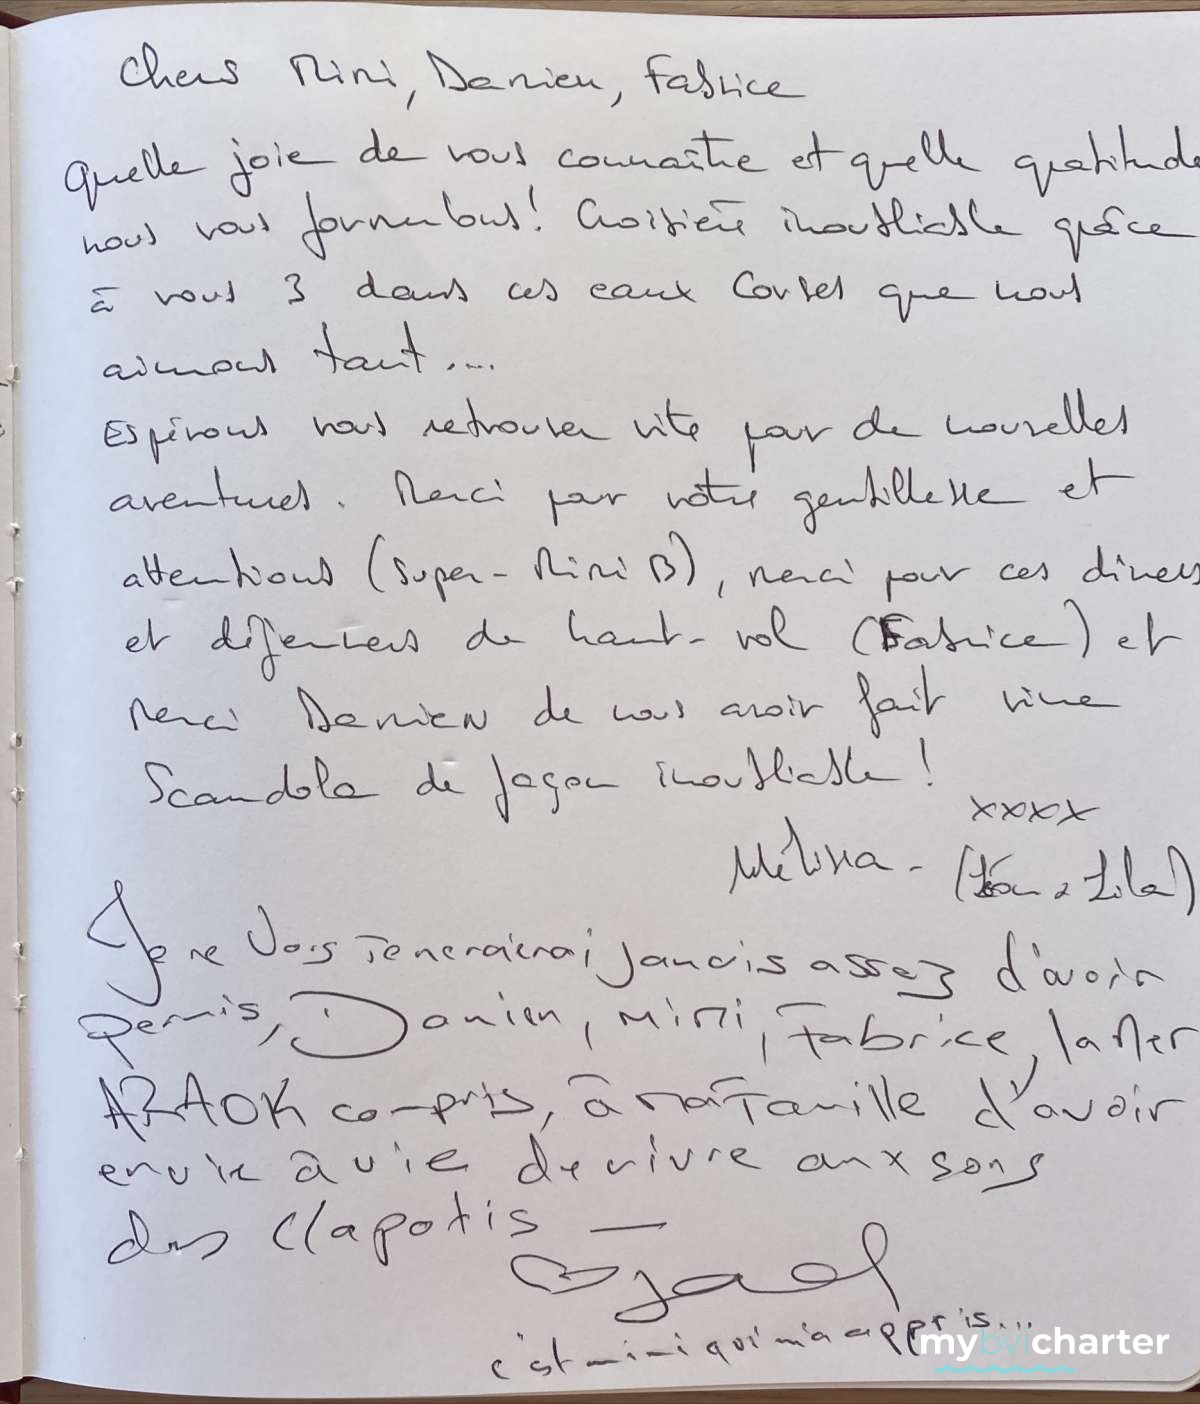 Chers Mimi, Damien, Fabrice
Quelle joie de vous connaître et quelle gratitude
nous vous formulons! Croisière inoubliable grâce
à vous 3 dans ces eaux Corses que nous
aimons tant....
Espérons vous retrouver vite pour de nouvelles
aventures. Merci pour votre gentillesse et
attentions (Super-Mimi B), merci pour ces diners
et déjeuners de haut-vol (Fabrice) et
merci Damien de nous avoir fait vivre
Scandola de façon inoubliable!
xxxx
Mélissa - (Léon & Lila)
Je ne vous remercierai jamais assez d'avoir
permis, Damien, Mimi, Fabrice, la Mer
ARAOK compris, à ma famille d'avoir
envie à vie de vivre aux sons
des clapotis —
c'est mimi qui m'a appris...
mybvicharter